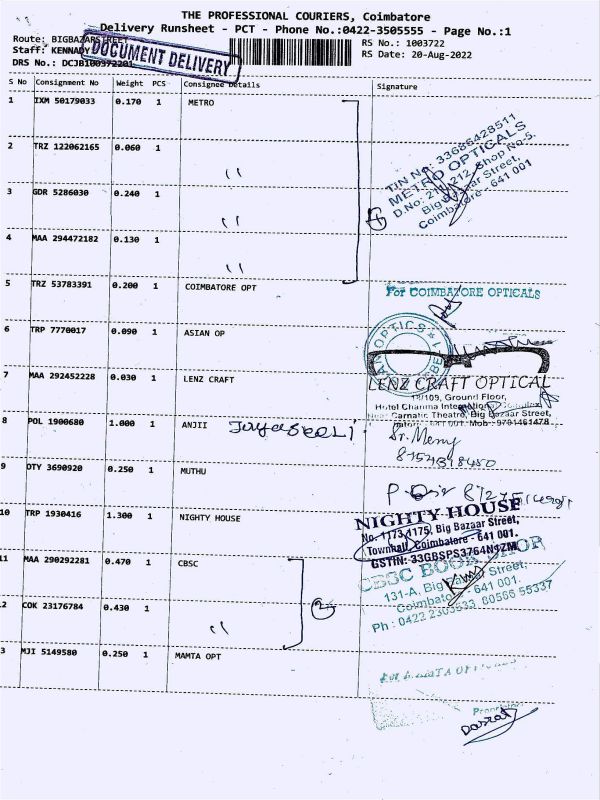 THE PROFESSIONAL COURIERS, Coimbatore
Delivery Runsheet - PCT - Phone No.:0422-3505555 - Page No.:1
Route: BIGBAZARSTREET
Staff: KENNADY
DRS No.:
DOCUMENT DELIVERY
RS No.: 1003722
RS Date: 20-Aug-2022
S No Consignment No Weight PCS Consignee Details Signature
1 IXM 50179033 0.170 1 METRO
2 TRZ 122062165 0.060 1 "
3 GDR 5286030 0.240 1 "
4 MAA 294472182 0.130 1 "
TIN No: 33686428511
METRO OPTICALS
D.No: 212, Shop No-5,
Big Bazaar Street,
Coimbatore - 641 001
5 TRZ 53783391 0.200 1 COIMBATORE OPT
For COIMBATORE OPTICALS
6 TRP 7770017 0.090 1 ASIAN OP
7 MAA 292452228 0.030 1 LENZ CRAFT
LENZ CRAFT OPTICAL
109, Ground Floor,
Hotel Channma International Complex
Near Carnatic Theatre, Big Bazaar Street,
641 001. Mob - 9701461478
8 POL 1900680 1.000 1 ANJII
9 OTY 3690920 0.250 1 MUTHU
10 TRP 1930416 1.300 1 NIGHTY HOUSE
NIGHTY HOUSE
No. 1173,1175, Big Bazaar Street,
Townhall, Coimbatore - 641 001.
GSTIN: 33GBSPS3764N1ZM
11 MAA 290292281 0.470 1 CBSC
CBSC BOOK SHOP
131-A, Big Bazaar Street,
Coimbatore - 641 001.
Ph : 0422 2303533 80566 55337
2 COK 23176784 0.430 1 "
2
3 MJI 5149580 0.250 1 MAMTA OPT
Proprietor